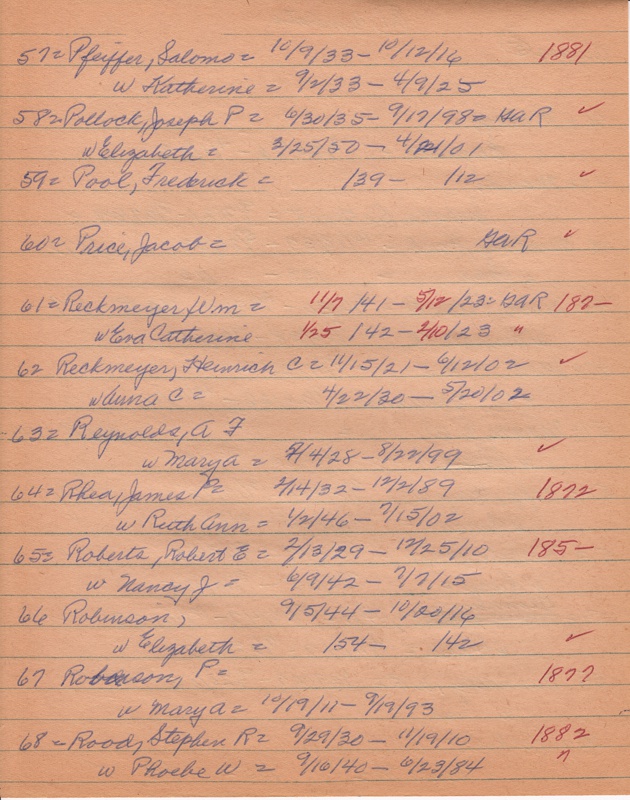 57= Pfeiffer, Salomo = 10/9/33 - 10/12/16 1881
w Katherine = 9/2/33 - 4/9/25
58= Pollock, Joseph P = 6/30/35 - 9/17/98 = GAR ✓
w Elizabeth = 3/25/50 - 4/ /01
59= Pool, Frederick = /39 - /12 ✓
60= Price, Jacob = GAR ✓
61= Reckmeyer, Wm = 11/7 /41 - 5/12 /23 = GAR 187-
w Eva Catherine 1/25 /42 - 2/10/23 "
62 Reckmeyer, Heinrich C = 11/15/21 - 6/12/02 ✓
w Anna C = 4/22/30 - 5/20/02
63= Reynolds, A F
w Mary A = 7/4/28 - 8/22/99 ✓
64= Rhea, James P = 2/14/32 - 12/2/89 1872
w Ruth Ann = 1/2/46 - 7/15/02
65= Roberts, Robert E = 2/13/29 - 12/25/10 185-
w Nancy J = 6/9/42 - 7/7/15
66 Robinson, 9/5/44 - 10/20/16
w Elizabeth = /54 - /42 ✓
67 Robinson, P = 1877
w Mary A = 10/19/11 - 9/19/93
68 = Rood, Stephen R = 9/29/30 - 11/19/10 1882
w Phoebe W = 9/16/40 - 6/23/84 "